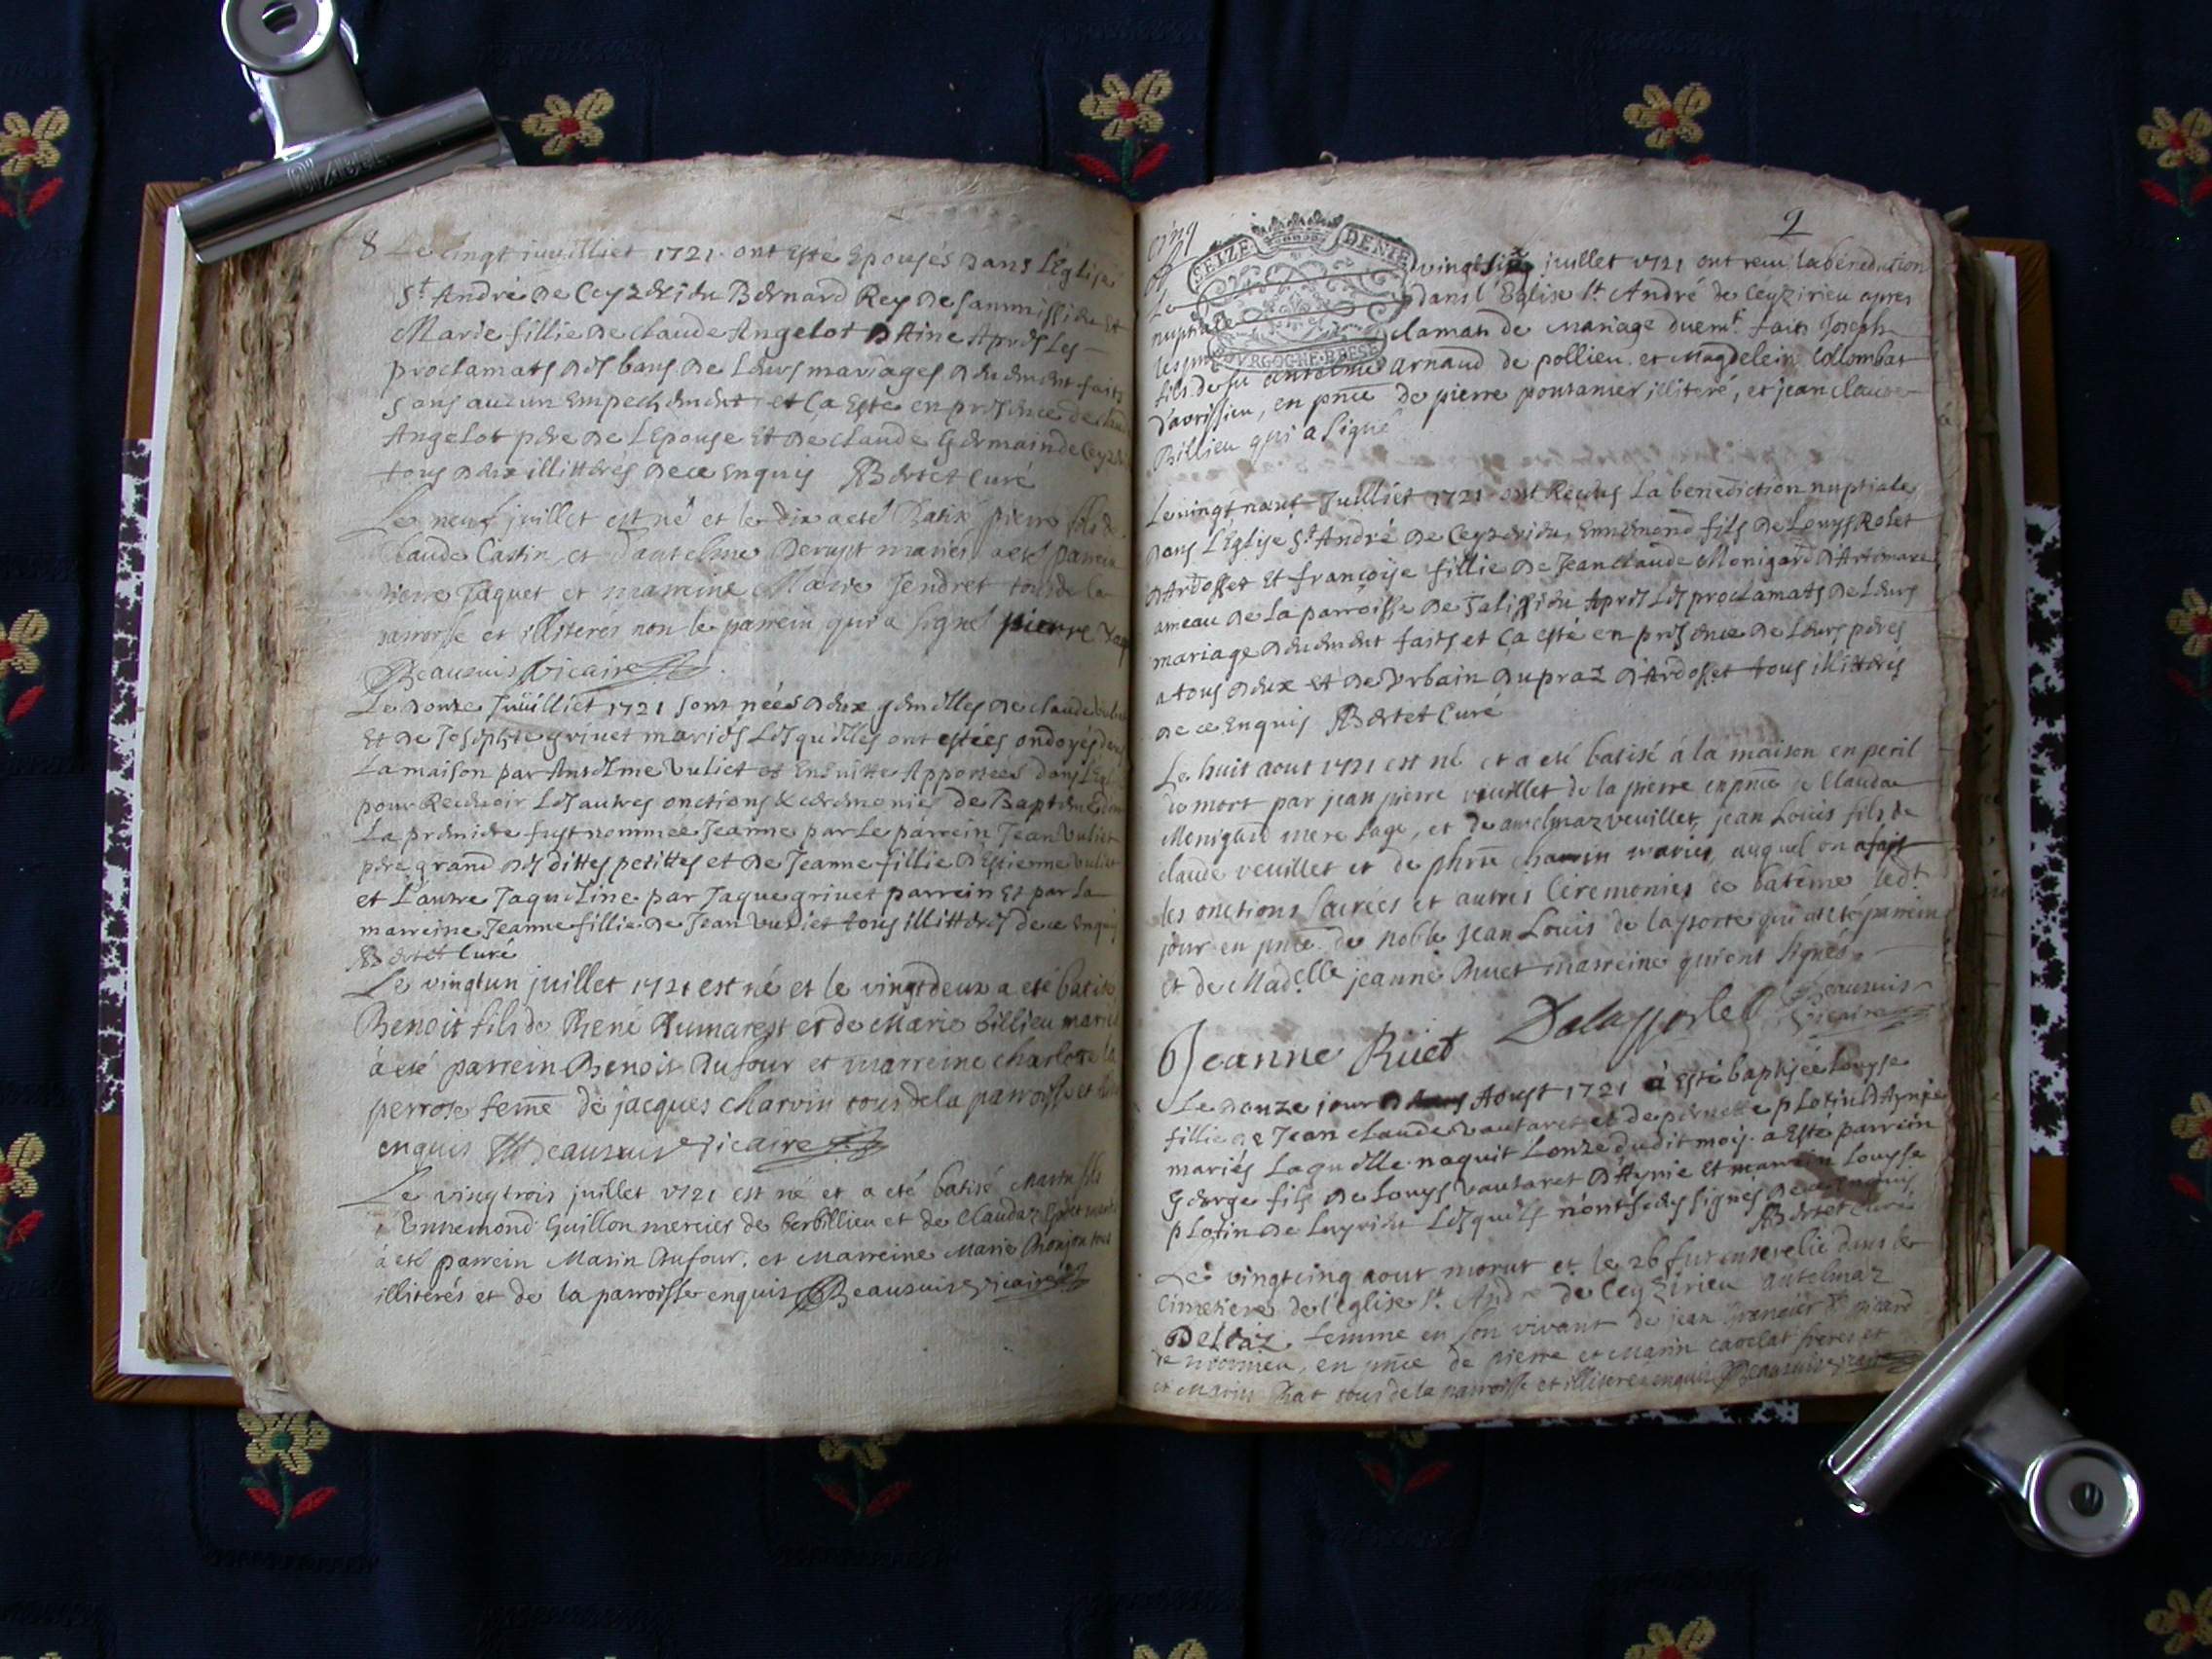 8 Le vingt juuilliet 1721 ont esté Epousés dans l'Eglise
St André de Ceyzerieu Bernard Rey de et
Marie fillie de claude Angelot D Aine Apres Les
proclamats des bans de Leurs mariages deuement faits
sans aucun Empechement et ça Esté en présence de
Angelot père de L'Epouse Et de claude Germain de
tous deux illitterés de ce Enquis Bertet Curé
Le neuf juillet est né et le dix a eté Batisé pierre fils de
Claude Castin et mariés a eté parrein
pierre Jaquet et marreine Marie Jendret tous de la
parroisse et illiterés non le parrein qui a signé pierre
Beausuis Vicaire
Le donze Juuilliet 1721 sont nées deux gemelles de claude
Et de Josephte grivet mariés Lesquelles ont estées ondoyés
La maison par Anselme Vuliet et Ensuitte Apportées dans
pour Recevoir Les autres onctions & ceremonies de Bapteme
La premiere fust nommée Jeanne par Le parrein Jean Vuliet
père grand des dittes petittes et de Jeanne fillie d'Estienne Vuliet
et L'autre Jaqueline par Jaque grivet parrein Et par la
marreine Jeanne fillie de Jean Vuliet tous illitterés de ce enquis
Bertet Curé
Le vingtun juillet 1721 est né et le vingtdeux a eté batisé
Benoit fils de René Dumarest et de Marie Billieu mariés
à eté parrein Benoit Dufour et marreine charlotte la
perrose feme de jacques charvin tous de la parroisse et
enquis Beausuis vicaire
Le vingtrois juillet 1721 est né et a eté batisé Marin fils
Ennemond Guillon mercier de berbillieu et de Claudaz
à eté parrein Marin Dufour, et Marreine Marie tous
illiterés et de la parroisse enquis Beausuis vicaire
cinq
9
SEIZE DENIE
BOVRGOGNE BRESE
Le vingt six juillet 1721 ont reçu la bénédiction
nuptiale dans l'Eglise St André de Ceyzirieu apres
les proclamats de Mariage duemt faits Joseph
fils de fu antelme arnaud de pollieu et Magdelein Collombat
d'avrissieu, en pnce de pierre pousanier illiteré, et jean claude
Billieu qui a signé
Le vingt neuf Juilliet 1721 ont Receus La benediction nuptiale
dans L'Eglise St André de Ceyzerieu Ennemond fils de Louys Rolet
d'Ardosset Et françoise fillie de Jean Claude Monigard d'Artemare
ameau de La parroisse de Talissieu Apres Les proclamats de Leurs
mariage deuement faits et ça esté en présence de Leurs pères
a tous deux et de Vrbain Dupraz d'Ardosset tous illitterés
de ce Enquis Bertet Curé
Le huit aout 1721 est né et a eté batisé à la maison en peril
de mort par jean pierre veuillet de la pierre en pnce de Claudaz
Monigard mere sage, et de anselmaz veuillet, jean Louis fils de
claude veuillet et de charvin mariés, auquel on a fait
les onctions sacrées et autres Ceremonies de bateme ledt
jour en pnce de noble Jean Louis de laporte qui a eté parrein
et de Madelle jeanne Ruet marreine qui ont signés
Delaporte Beausuis
Jeanne Ruet Vicaire
Le donze jour Aoust 1721 à Esté baptisée Louyse
fillie de Jean claude Vautaret et de pernette plotin D'Aynie
mariés Laquelle naquit Lonze dudit mois. a Esté parrein
George fils de Louys Vautaret D'Aynie Et marrein Louyse
plotin de Luyrieu Lesquels n'ont signés de ce enquis
Bertet Curé
Le vingtcinq aout morut et le 26 fut enseveli dans le
Cimetiere de l'église St André de Ceyzirieu antelmaz
Deltaz, femme en son vivant de jean
en pnce de pierre et Marin cavelat freres et
et Marin tous de la parroisse et illiterés enquis Beausuis vicaire